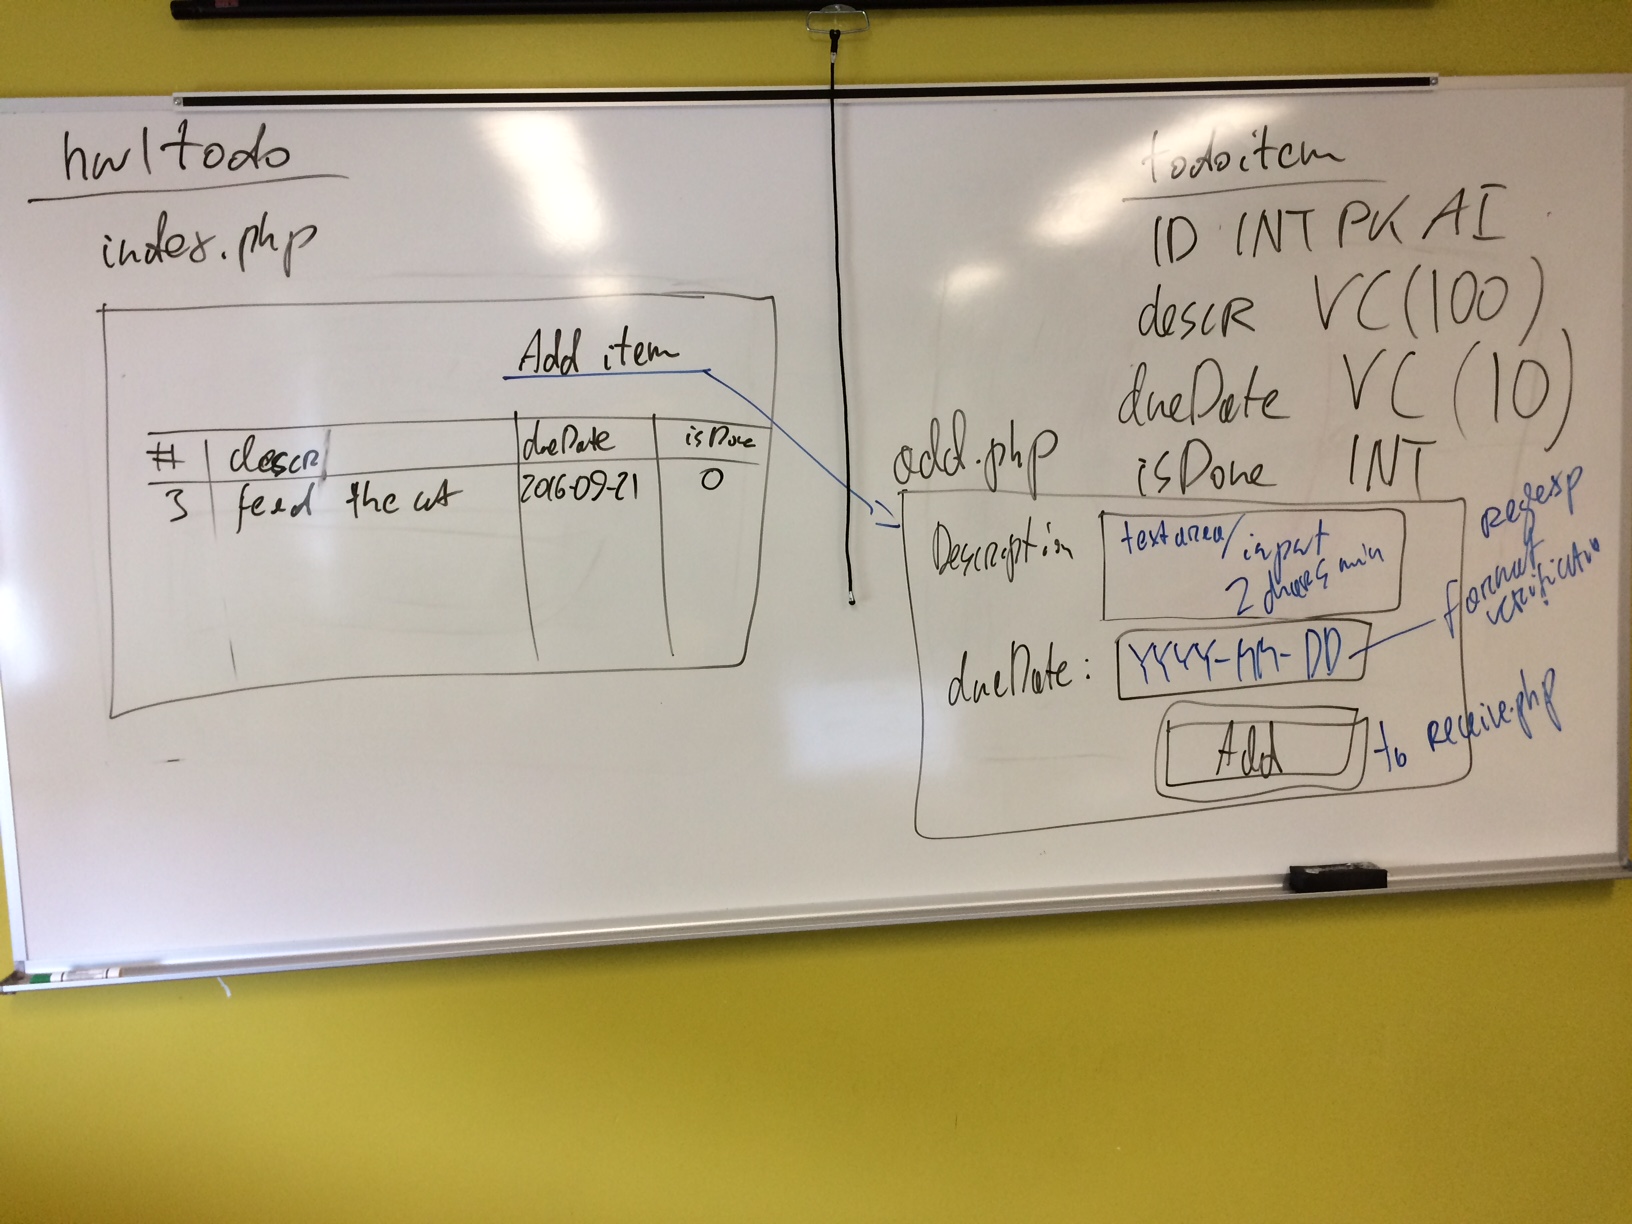 hw1todo
index.php
Add item
# descr dueDate isDone
3 feed the cat 2016-09-21 0
todoitem
ID INT PK AI
descR VC(100)
dueDate VC(10)
isDone INT
add.php
Description
textarea/input
2 chars min
dueDate: YYYY-MM-DD
regexp
format
verification
Add
to receive.php